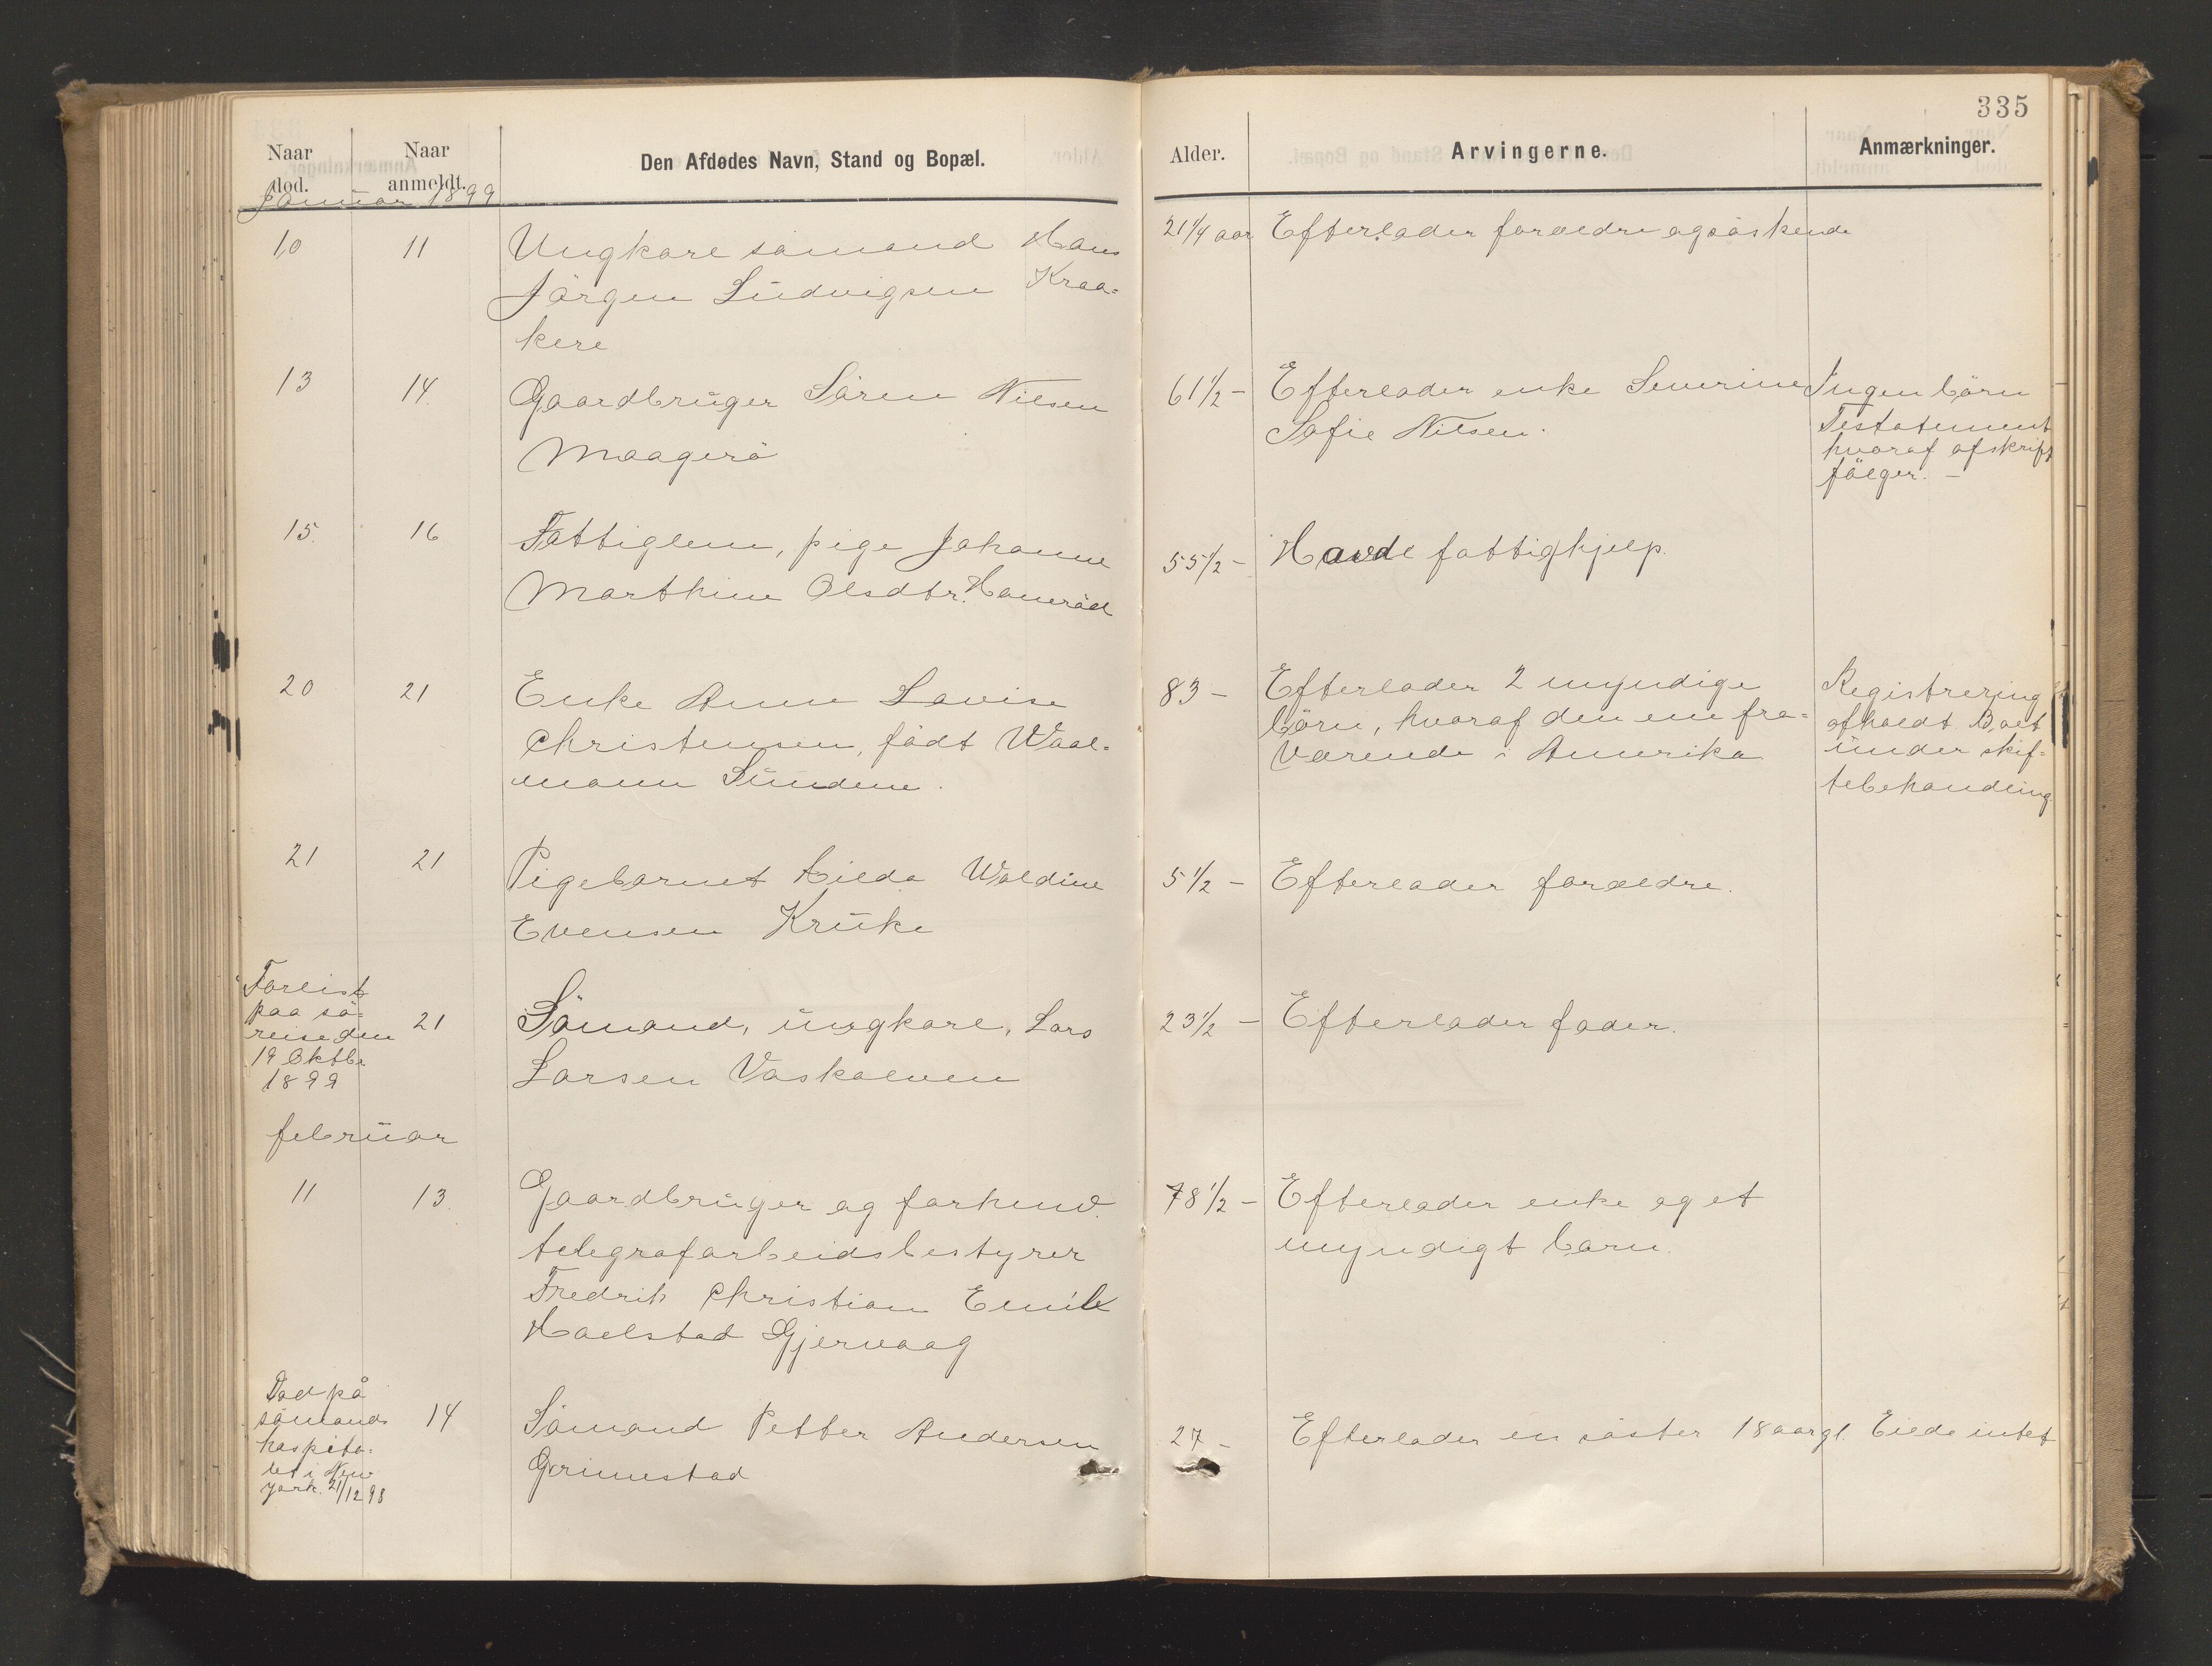 335
Naar død. Naar anmeldt. Den Afdødes Navn, Stand og Bopæl. Alder. Arvingerne. Anmærkninger.
Januar 1899
10 11 Ungkarl sömand Hans 21 1/4 aar Efterlader forældre og söskende
Jörgen Ludvigsen Kraa=
kere
13 14. Gaardbruger Sören Nilsen 61 1/2 - Efterlader enke Severine Ingen börn
Maagerö Sofie Nilsen. Testatement
hvoraf afskrift
fölger. -
15. 16 Fattiglem, pige Johanne 55 1/2 - Havde fattighjelp.
Marthine Olsdtr. Haneröd
20 21 Enke Anne Lovise 83 - Efterlader 2 myndige Registrering
Christensen, födt Waal= börn, hvoraf den ene fra= afholdt Boet
mann Sundene. værende i Amerika under skif=
tebehandling
21 21 Pigebarnet Hilda Waldine 5 1/2 - Efterlader forældre.
Evensen Kruke
Forlist
paa sö=
reise den
19 Oktbr
1899
21 Sömand, ungkarl, Lars 23 1/2 - Efterlader fader.
Larsen Vaskalven
februar
11 13. Gaardbruger og forhenv. 78 1/2 - Efterlader enke og et
telegrafarbeidsbestyrer myndigt barn.
Fredrik Christian Emil
Halstad Gjervaag
Död på
sömands
hospita=
let i New
york. 21/12 98
14 Sömand Petter Andersen 27 - Efterlader en söster 18 aar gl. Eiede intet
Grimestad